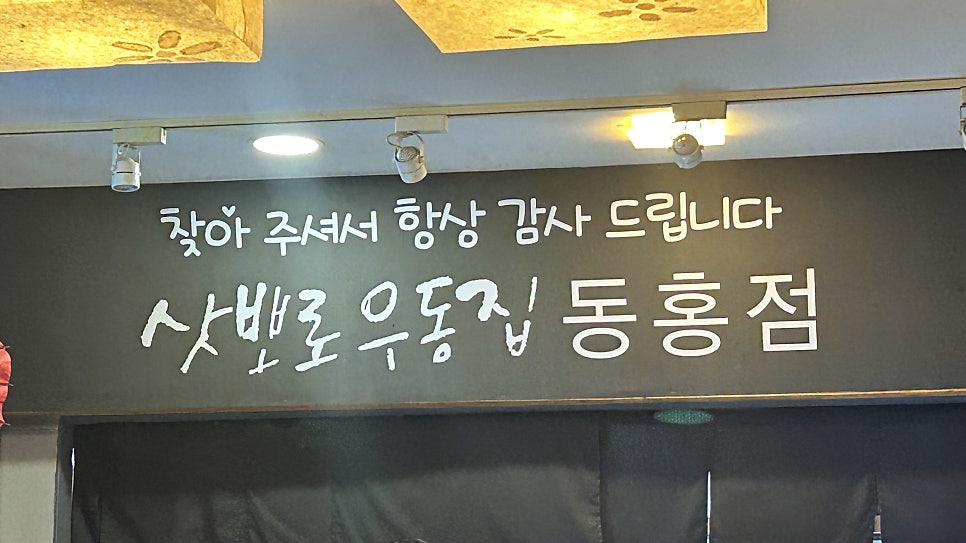 찾아 주셔서 항상 감사 드립니다
삿뽀로우동집 동홍점